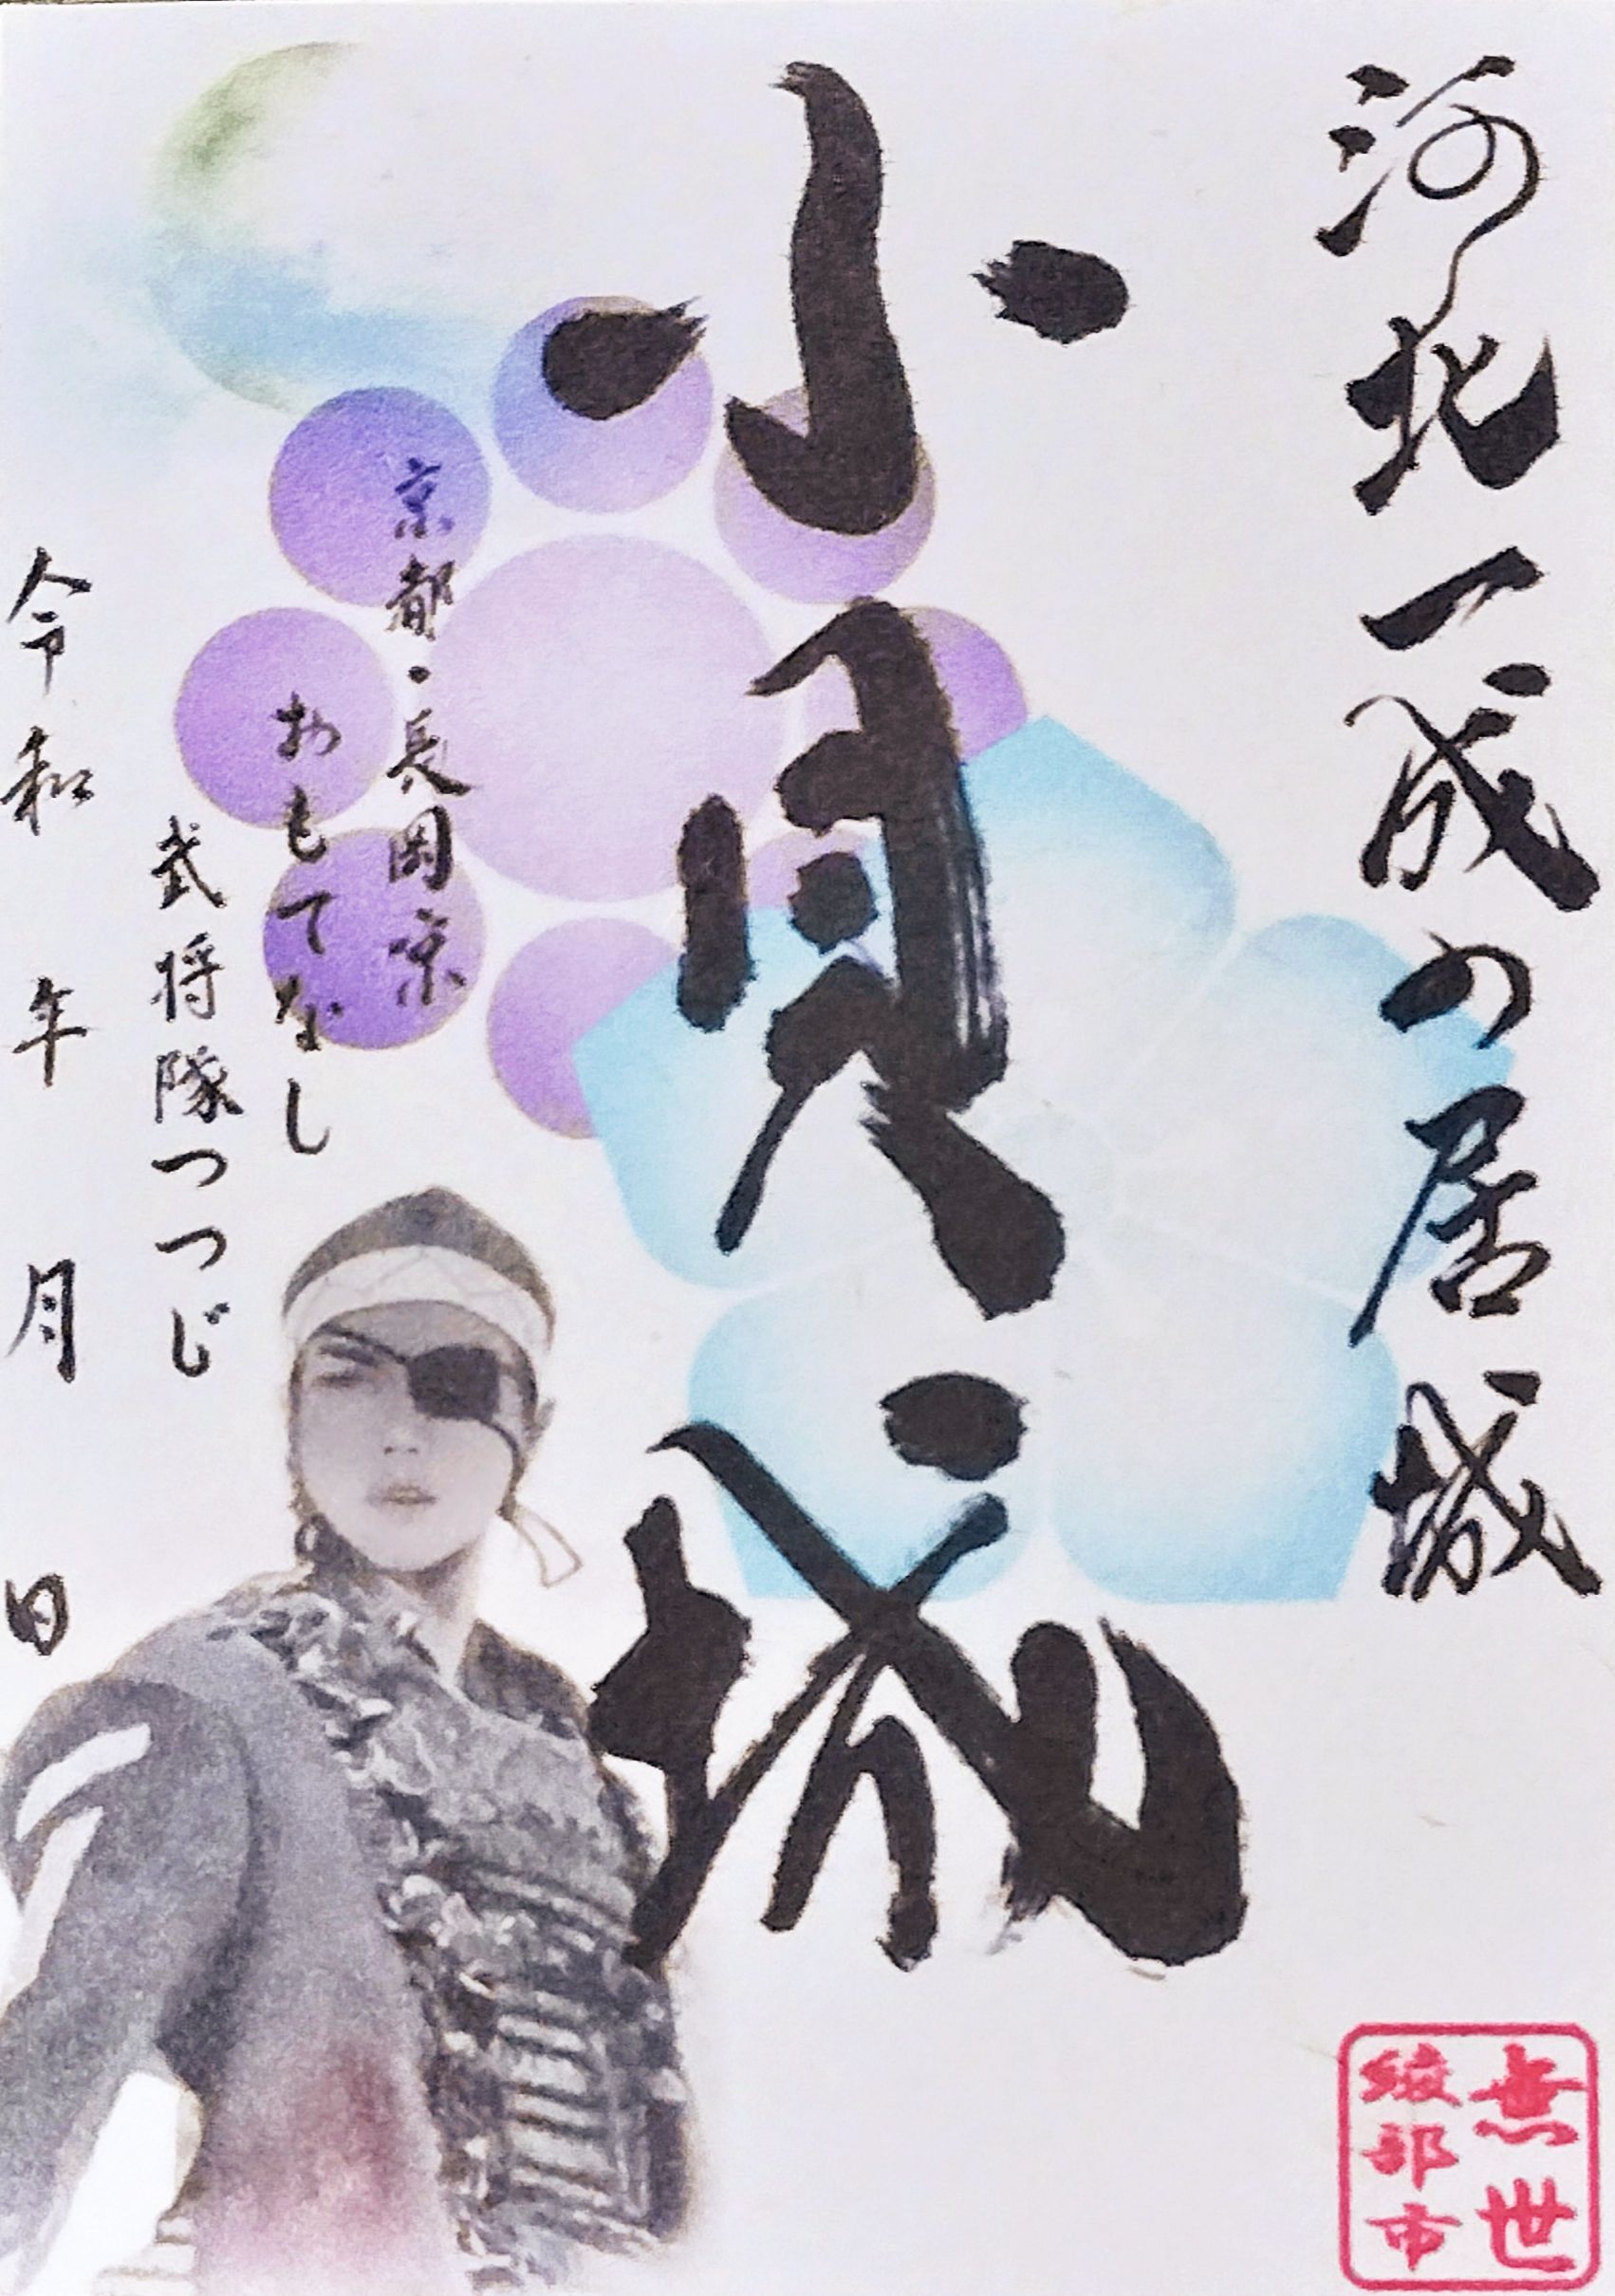 河北一成の居城
小畠城
京都・長岡京
おもてなし
武将隊つつじ
令和 年 月 日
無世
綾部市